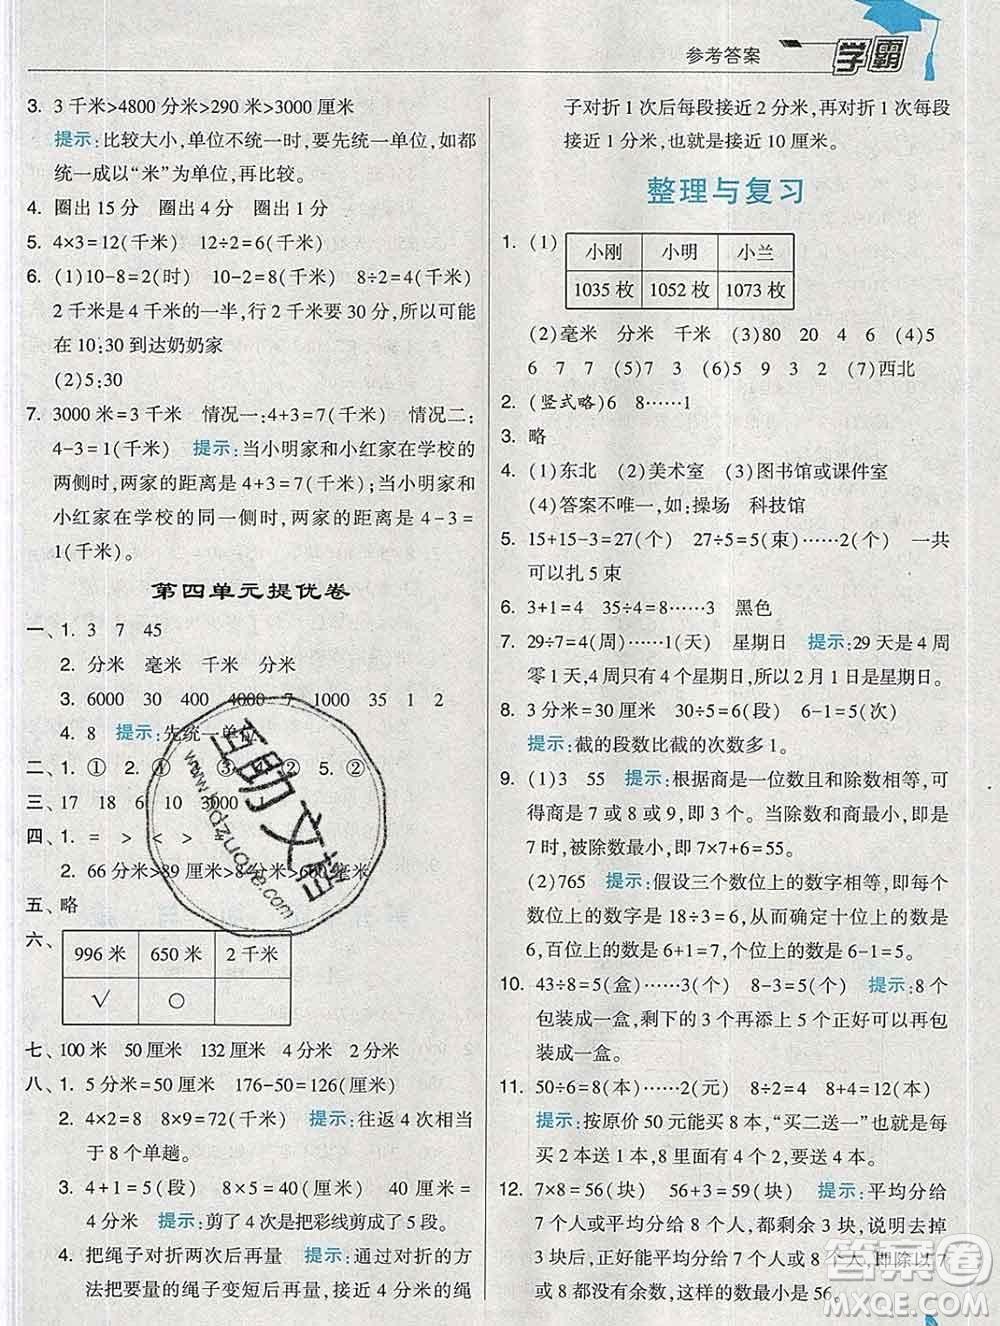 参考答案 学霸
3. 3千米>4800分米>290米>3000厘米
提示:比较大小,单位不统一时,要先统一单位,如都
统一成以“米”为单位,再比较。
4. 圈出15分 圈出4分 圈出1分
5. 4×3=12(千米) 12÷2=6(千米)
6. (1)10-8=2(时) 10-2=8(千米) 8÷2=4(千米)
2千米是4千米的一半,行2千米要30分,所以可能
在10:30到达奶奶家
(2)5:30
7. 3000米=3千米 情况一:4+3=7(千米) 情况二:
4-3=1(千米) 提示:当小明家和小红家在学校的
两侧时,两家的距离是4+3=7(千米);当小明家和
小红家在学校的同一侧时,两家的距离是4-3=
1(千米)。
第四单元提优卷
一、1. 3 7 45
2. 分米 毫米 千米 分米
3. 6000 30 400 4000 7 1000 35 1 2
4. 8 提示:先统一单位。
二、1. ① 2. ④ ③ 4. ② 5. ②
三、17 18 6 10 3000
四、1. = > < >
2. 66分米>89厘米>8分米>600毫米
五、略
六、
996米 650米 2千米
√ ○
七、100米 50厘米 132厘米 4分米 2分米
八、1. 5分米=50厘米 176-50=126(厘米)
2. 4×2=8 8×9=72(千米) 提示:往返4次相当
于8个单趟。
3. 4+1=5(段) 8×5=40(分米) 40分米=4米
4米 提示:剪了4次是把彩线剪成了5段。
4. 把绳子对折两次后再量 提示:通过对折的方
法把要量的绳子变短后再量,接近4分米的绳
子对折1次后每段接近2分米,再对折1次每段
接近1分米,也就是接近10厘米。
整理与复习
1. (1)
小刚 小明 小兰
1035枚 1052枚 1073枚
(2)毫米 分米 千米 (3)80 20 4 (4)5
6 7 7 (5)7 (6)5 9 3 2 (7)西北
2. (竖式略)6 8……1
3. 略
4. (1)东北 (2)美术室 (3)图书馆或课件室
(4)答案不唯一,如:操场 科技馆
5. 15+15-3=27(个) 27÷5=5(束)……2(个) 一共
可以扎5束
6. 3+1=4 35÷4=8……3 黑色
7. 29÷7=4(周)……1(天) 星期日 提示:29天是4周
零1天,4周只有4个星期日,所以2月1日是星期日。
8. 3分米=30厘米 30÷5=6(段) 6-1=5(次)
提示:截的段数比截的次数多1。
9. (1)3 55 提示:根据商是一位数且和除数相等,可
得商是7或8或9,即3个。当除数和商最小,即
是7时,被除数最小,即7×7+6=55。
(2)765 提示:假设三个数位上的数字相等,那么
每个数位上的数是18÷3=6,从而确定十位上的数是
6,百位上的数是6+1=7,个位上的数是6-1=5。
10. 43÷8=5(盒)……3(个) 8-3=5(个) 提示:8个
包装成一盒,剩下的3个再添上5个正好可以再包
装成一盒。
11. 50÷6=8(本)……2(元) 8÷2=4 8+4=12(本)
提示:按原价50元能买8本,“买二送一”也就是每
买2本送1本,8里面有4个2,所以能送4本。
12. 7×8=56(块) 56+3=59(块) 提示:平均分给
7个人或平均分给8个人,都多3块,说明去掉
3块后,正好能平均分给7个人或8个人,即除以7
或8都没有余数,这样的数最小是56。
互助文档
www.hdzuoye.com
答案卷
MXQE.COM